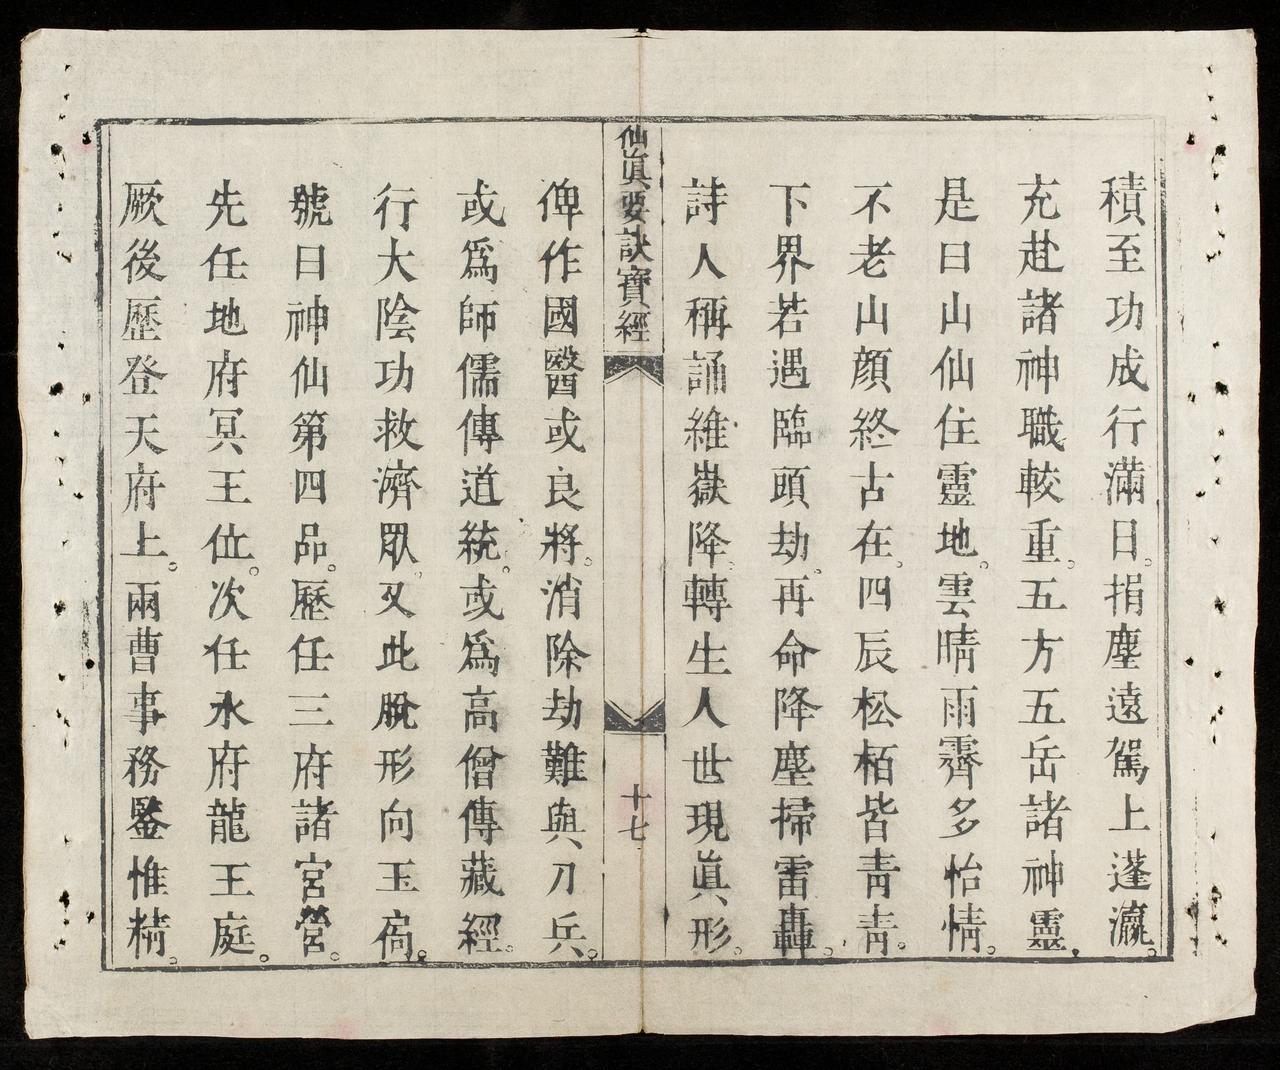 積至功成行滿日。捐塵遠駕上蓬瀛。
充赴諸神職較重。五方五岳諸神靈。
是曰山仙住靈地。雲晴雨霽多怡情。
不老山顏終古在。四辰松栢皆青青。
下界若遇臨頭劫。再命降塵掃雷轟。
詩人稱誦維嶽降。轉生人世現眞形。
仙眞要訣寳經
十七
俾作國醫或良將。消除劫難與刀兵。
或爲師儒傳道統。或爲高僧傳藏經。
行大陰功救濟眾。又此脫形向玉扃。
號曰神仙第四品。歷任三府諸宮營。
先任地府冥王位。次任水府龍王庭。
厥後歷登天府上。兩曹事務鑒惟精。